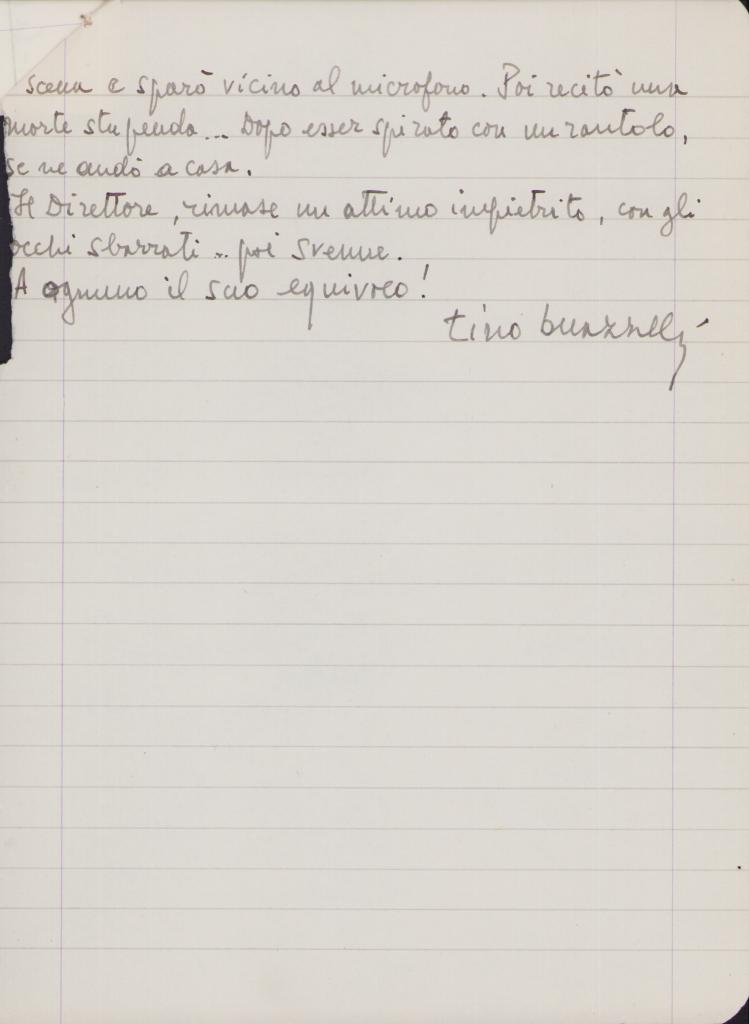 scena e sparò vicino al microfono. Poi recitò una
morte stupenda... Dopo esser spirato con un rantolo,
se ne andò a casa.
Il Direttore, rimase un attimo impietrito, con gli
occhi sbarrati... poi svenne.
A ognuno il suo equivoco!
Tino Buazzelli